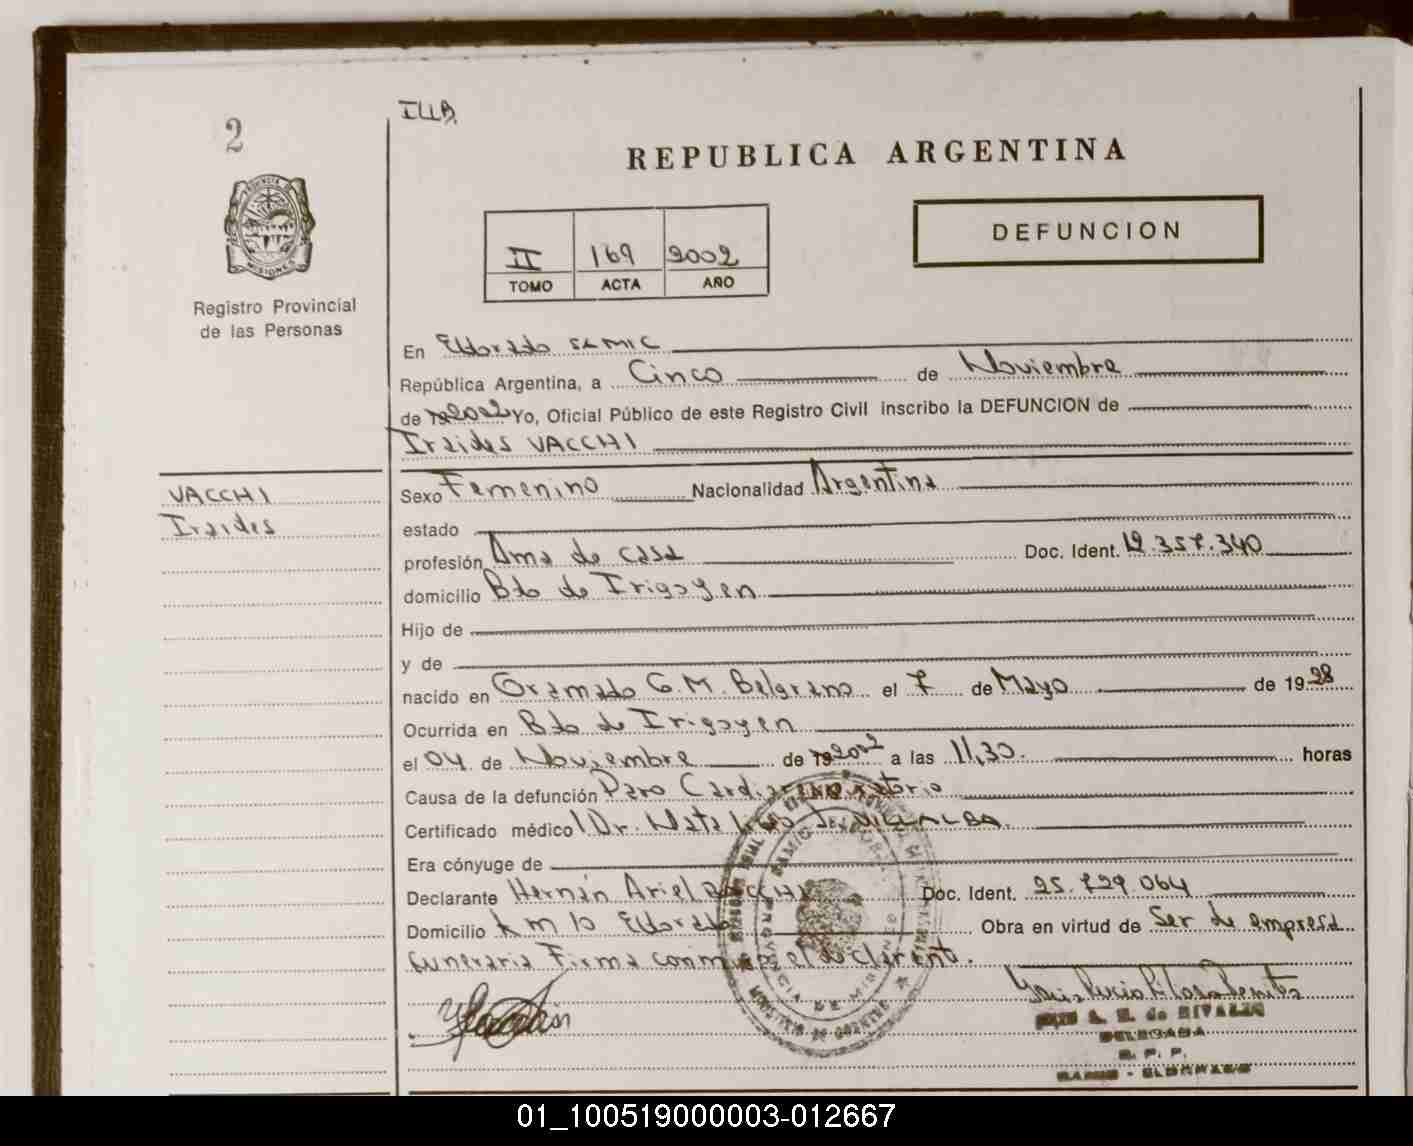 2
ILLB
REPUBLICA ARGENTINA
DEFUNCION
II 169 2002
TOMO ACTA AÑO
PROVINCIA DE MISIONES
Registro Provincial
de las Personas
En Eldorado SAMIC
República Argentina, a Cinco de Noviembre
de 2002 Yo, Oficial Público de este Registro Civil inscribo la DEFUNCION de
Iraides VACCHI
VACCHI
Iraides
Sexo Femenino Nacionalidad Argentina
estado
profesión Ama de casa Doc. Ident. 12.357.340
domicilio Bdo de Irigoyen
Hijo de
y de
nacido en Gramado G.M. Belgrano el 7 de Mayo de 1928
Ocurrida en Bdo de Irigoyen
el 04 de Noviembre de 2002 a las 11,30. horas
Causa de la defunción Paro Cardiorespiratorio
Certificado médico Dr. VILLALBA.
Era cónyuge de
Declarante Hernán Ariel Doc. Ident. 25.729.064
Domicilio Km 10 Eldorado Obra en virtud de Ser de empresa
funeraria Firma conmigo el declarante.
A. de
DELEGADA
R. P. P.
SAMIC - ELDORADO
PROVINCIA DE MISIONES
MINISTERIO DE GOBIERNO
01_100519000003-012667